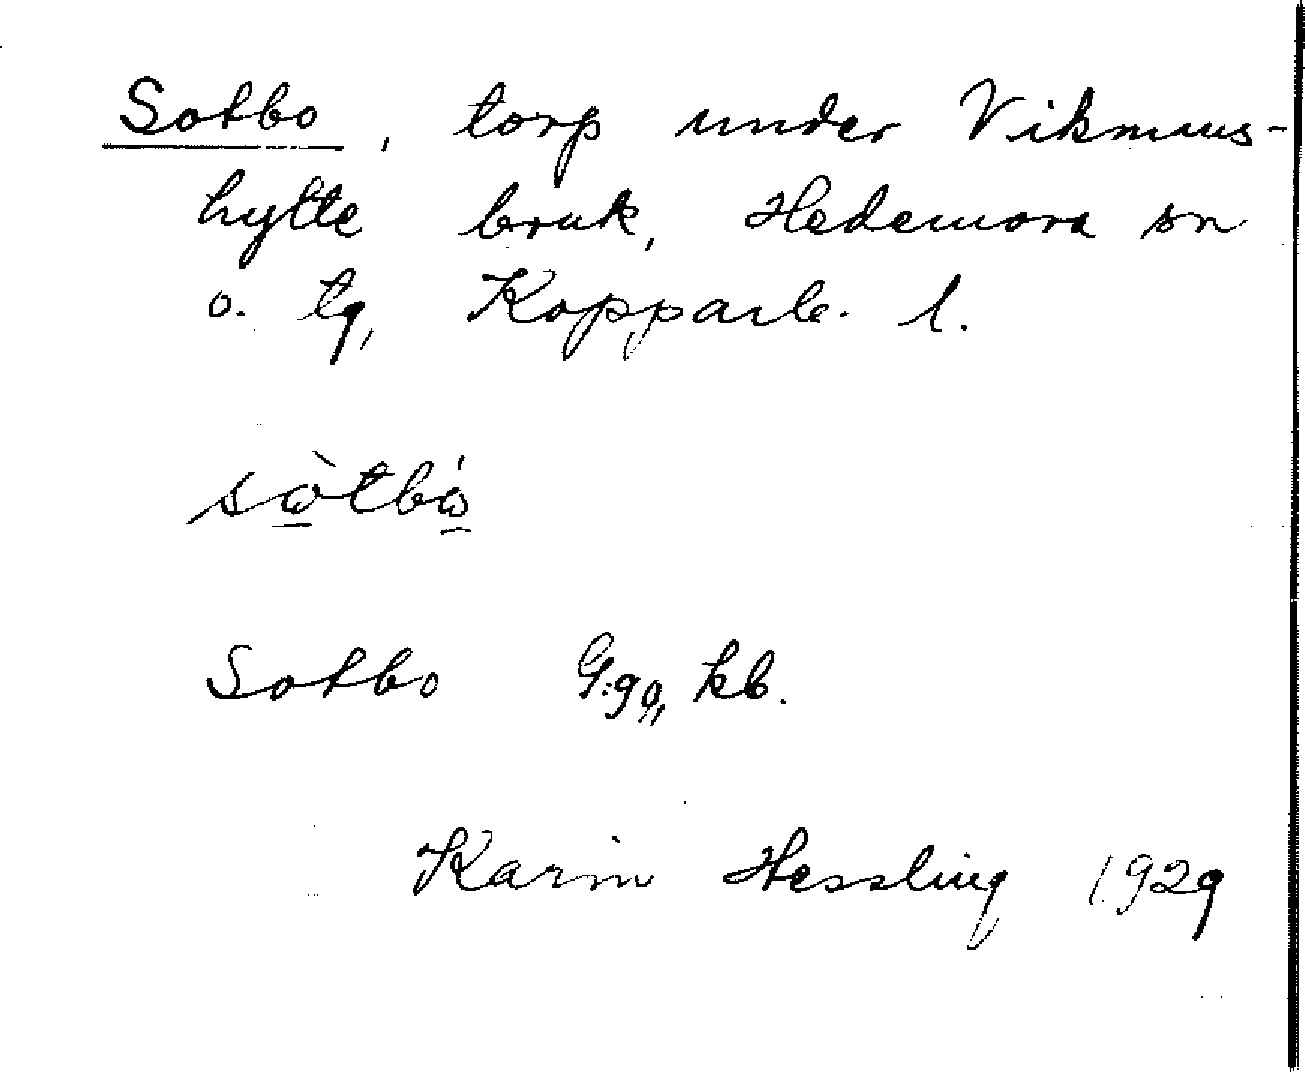 Sotbo, torp under Vikmus-
hytte bruk, Hedemora sn
o. tg, Kopparb. l.
sὼ̲tbώ̲
Sotbo G:go, kb.
Karin Hessling 1929